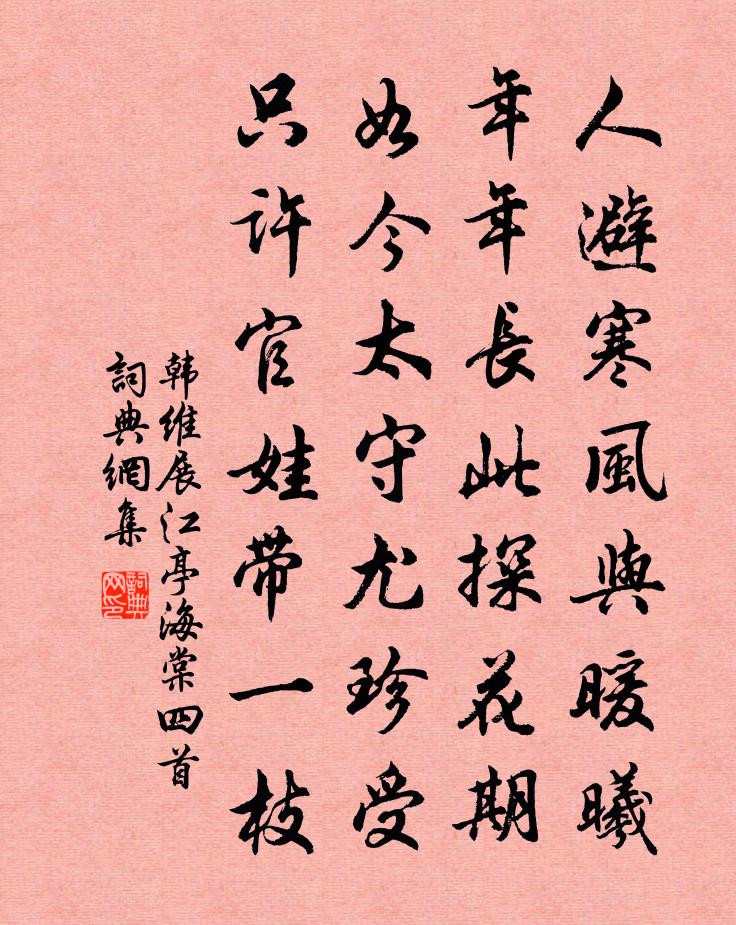 人避寒風與暖曦
年年長此探花期
如今太守尤珍受
只許官娃帶一枝
韩維展江亭海棠四首
詞典網集
詞典网印